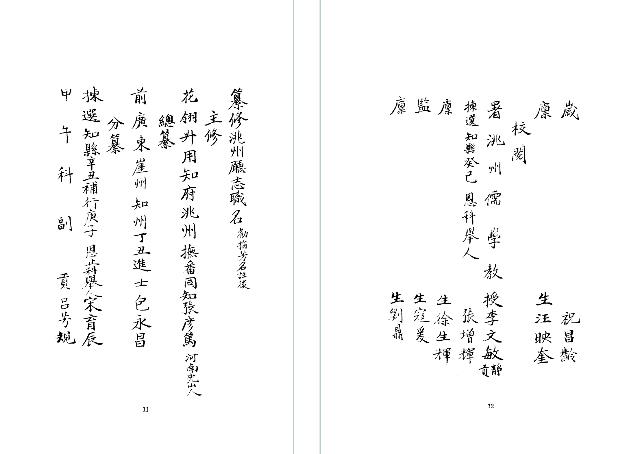 纂修洮州廳志職名 勸捐芳名註後
主修
花翎升用知府洮州撫番同知張彥篤 河南光山人
總纂
前廣東崖州知州丁丑進士包永昌
分纂
揀選知縣辛丑補行庚子恩正科舉人宋育辰
甲午科副貢呂芳規
11
歲 祝昌齡
廩生汪映奎
校閱
署洮州儒學教授李文敏 靜貢
揀選知縣癸巳恩科舉人張增輝
廩生徐生輝
監生寇爰
廩生劉鼎
12